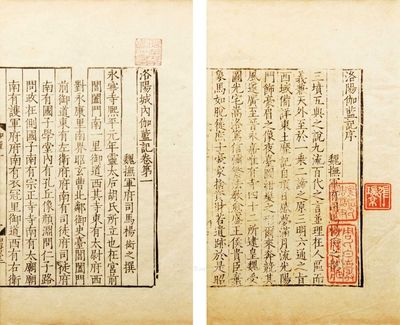 洛陽伽藍記序
魏撫軍府司馬楊衒之撰
三墳五典之說九流百代之言並理在人區而
義兼天外至於一乘二諦之原三明六通之旨
西域備詳東土靡記自項日感夢滿月流光陽
門飾豪眉之像夜臺圖紺髮之形爾來奔競其
風遂廣至晉永嘉唯有寺四十二所逮皇魏受
圖光宅嵩洛篤信彌繁法教逾盛王侯貴臣棄
象馬如脫屣庶士豪家捨資財若遺跡於是昭
洛陽城內伽藍記卷第一
魏撫軍府司馬楊衒之撰
永寧寺熙平元年靈太后胡氏所立也在宮前
閶闔門南一里御道西其寺東有太尉府西
對永康里南界昭玄曹北鄰御史臺閶闔門
前御道東有左衛府府南有司徒府司徒府
南有國子學堂內有孔丘像顏淵問仁子路
問政在側國子南有宗正寺寺南有太廟廟
南有護軍府府南有衣冠里御道西有右衛